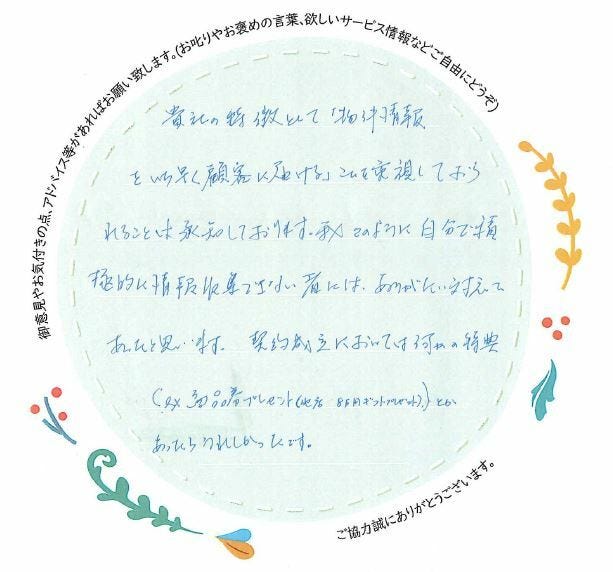 御意見やお気付きの点、アドバイス等があればお願い致します。(お叱りやお褒めの言葉、欲しいサービス情報などご自由にどうぞ)
貴社の特徴として「物件情報
をいち早く顧客に届ける」ことを重視しておら
れることは承知しております。私のように自分で積
極的に情報収集できない者には、ありがたい対応で
あったと思います。契約成立においては何かの特典
(ex 商品券プレゼント ギフトプレゼント)とか
あったらうれしかったです。
ご協力誠にありがとうございます。